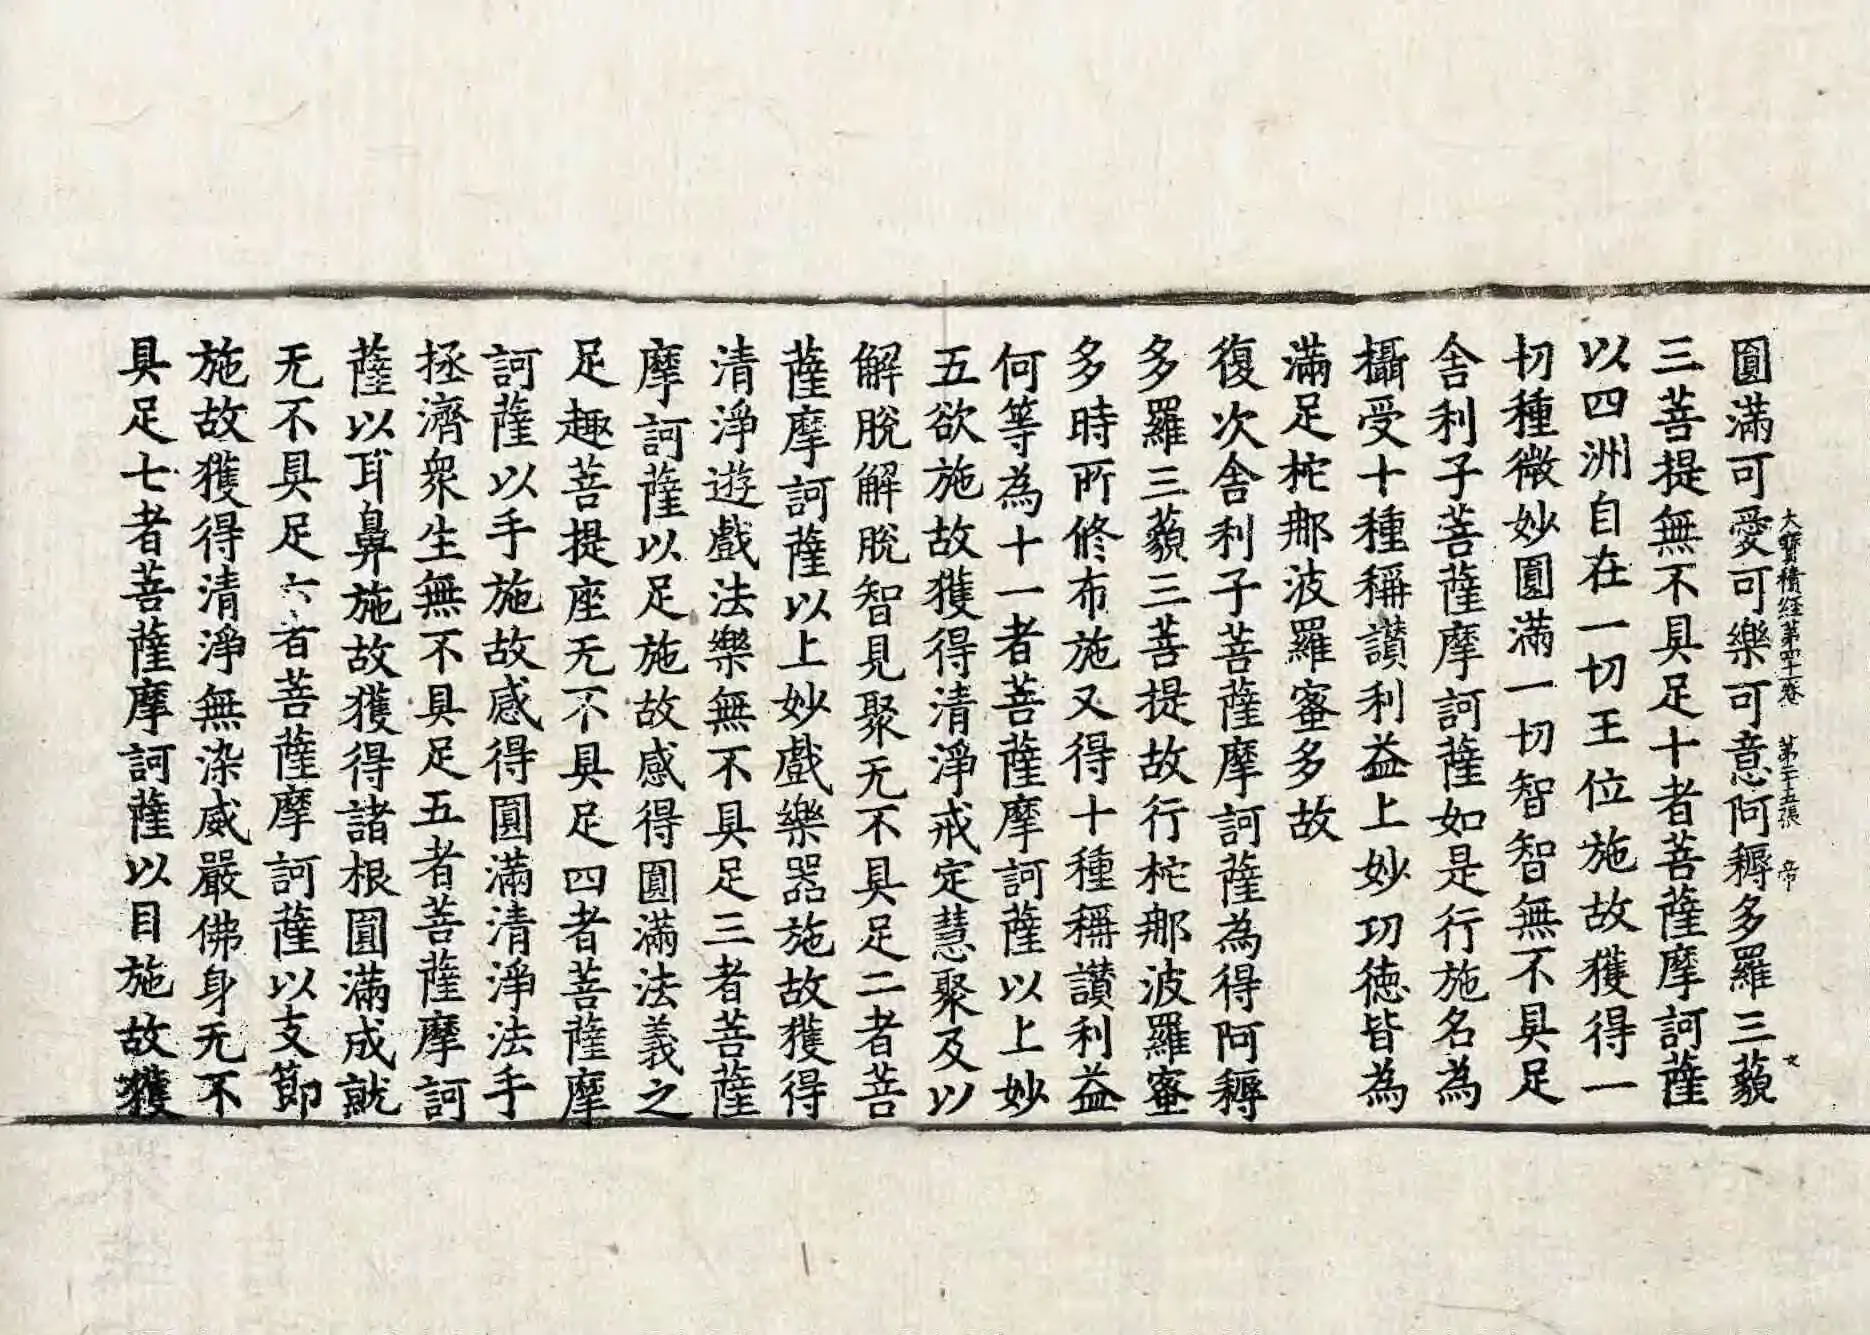 大寶積經第四十一卷 第二十五張 帝
圓滿可愛可樂可意阿耨多羅三藐
三菩提無不具足十者菩薩摩訶薩
以四洲自在一切王位施故獲得一
切種微妙圓滿一切智智無不具足
舎利子菩薩摩訶薩如是行施名為
攝受十種稱讃利益上妙功徳皆為
滿足柁郍波羅蜜多故
復次舎利子菩薩摩訶薩為得阿耨
多羅三藐三菩提故行柁郍波羅蜜
多時所修布施又得十種稱讃利益
何等為十一者菩薩摩訶薩以上妙
五欲施故獲得清淨戒定慧聚及以
解脫解脫智見聚无不具足二者菩
薩摩訶薩以上妙戲樂器施故獲得
清淨遊戲法樂無不具足三者菩薩
摩訶薩以足施故感得圓滿法義之
足趣菩提座无不具足四者菩薩摩
訶薩以手施故感得圓滿清淨法手
拯濟衆生無不具足五者菩薩摩訶
薩以耳鼻施故獲得諸根圓滿成就
无不具足六者菩薩摩訶薩以支節
施故獲得清淨無染威嚴佛身无不
具足七者菩薩摩訶薩以目施故獲